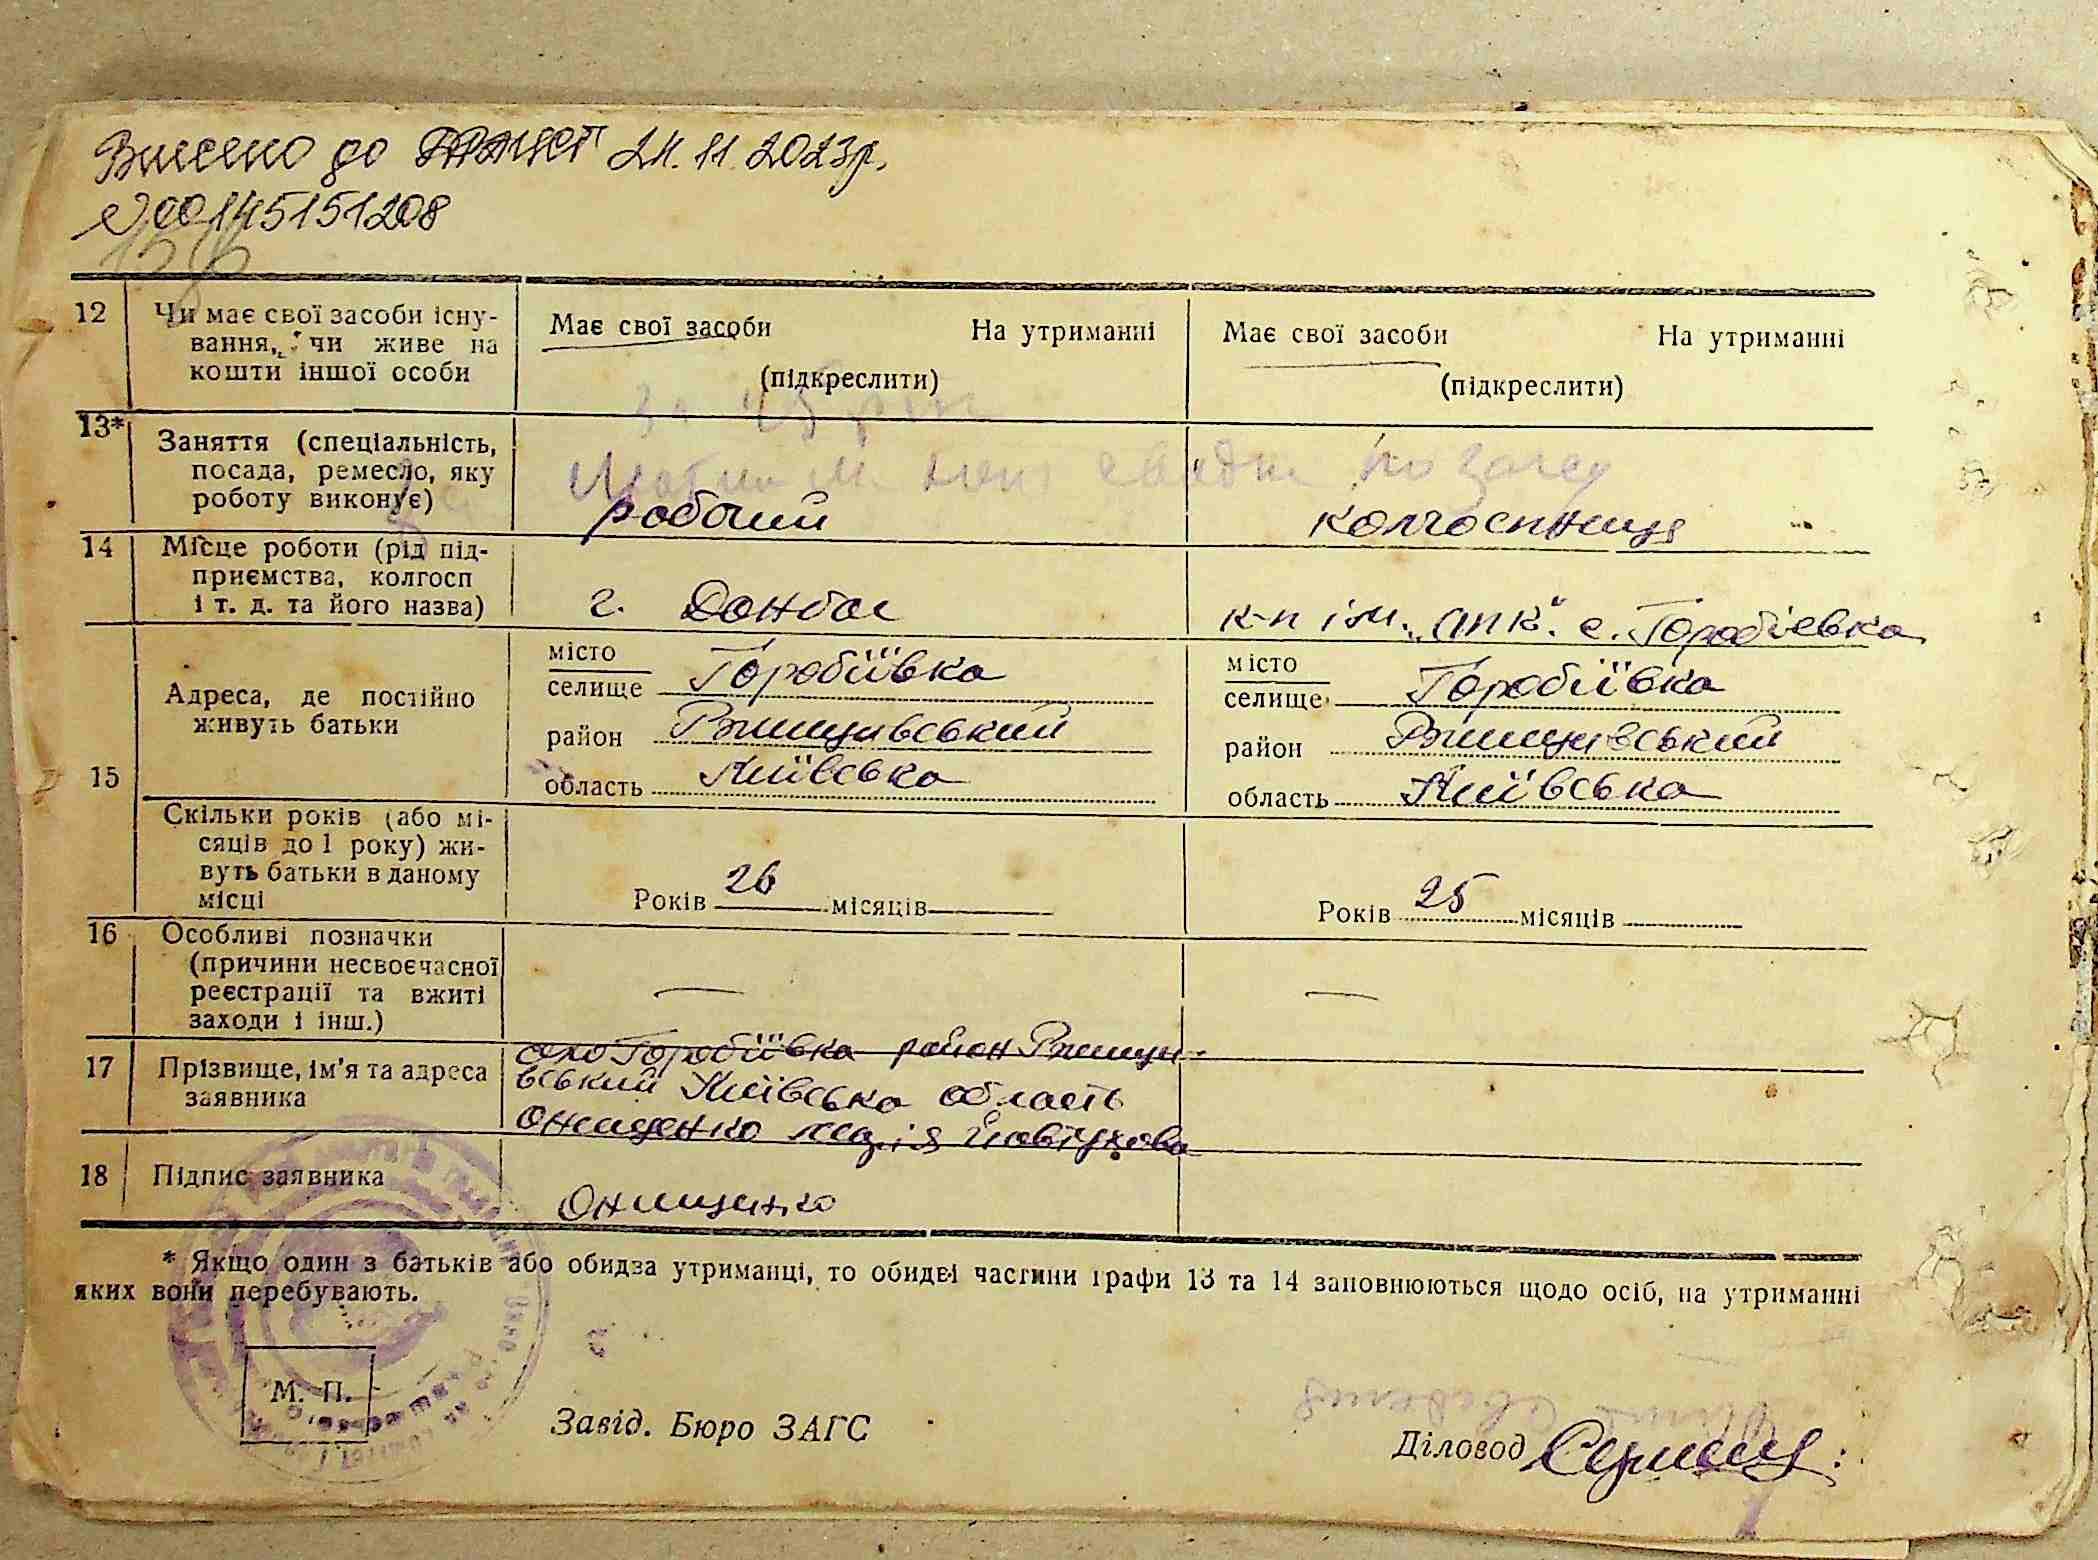 Внесено до ДРАЦСГ 21.11.2023р.
№00145151208
12 Чи має свої засоби існу-
вання, чи живе на
кошти іншої особи
Має свої засоби На утриманні
(підкреслити)
Має свої засоби На утриманні
(підкреслити)
13* Заняття (спеціальність,
посада, ремесло, яку
роботу виконує)
робочий
колгоспниця
14 Місце роботи (рід під-
приємства, колгосп
і т. д. та його назва)
г. Донбас
к-п ім. с. Горобієвка
15 Адреса, де постійно
живуть батьки
місто
селище Горобіївка
район Ржищівський
область Київська
місто
селище Горобіївка
район Ржищівський
область Київська
Скільки років (або мі-
сяців до 1 року) жи-
вуть батьки в даному
місці
Років 26 місяців
Років 25 місяців
16 Особливі позначки
(причини несвоєчасної
реєстрації та вжиті
заходи і інш.)
—
—
17 Прізвище, ім'я та адреса
заявника
село Горобіївка район Ржищі-
вський Київська область
Онищенко Марія Йовтухова
18 Підпис заявника
Онищенко
* Якщо один з батьків або обидва утриманці, то обидві частини графи 13 та 14 заповнюються щодо осіб, на утриманні
яких вони перебувають.
М. П.
Завід. Бюро ЗАГС
Діловод